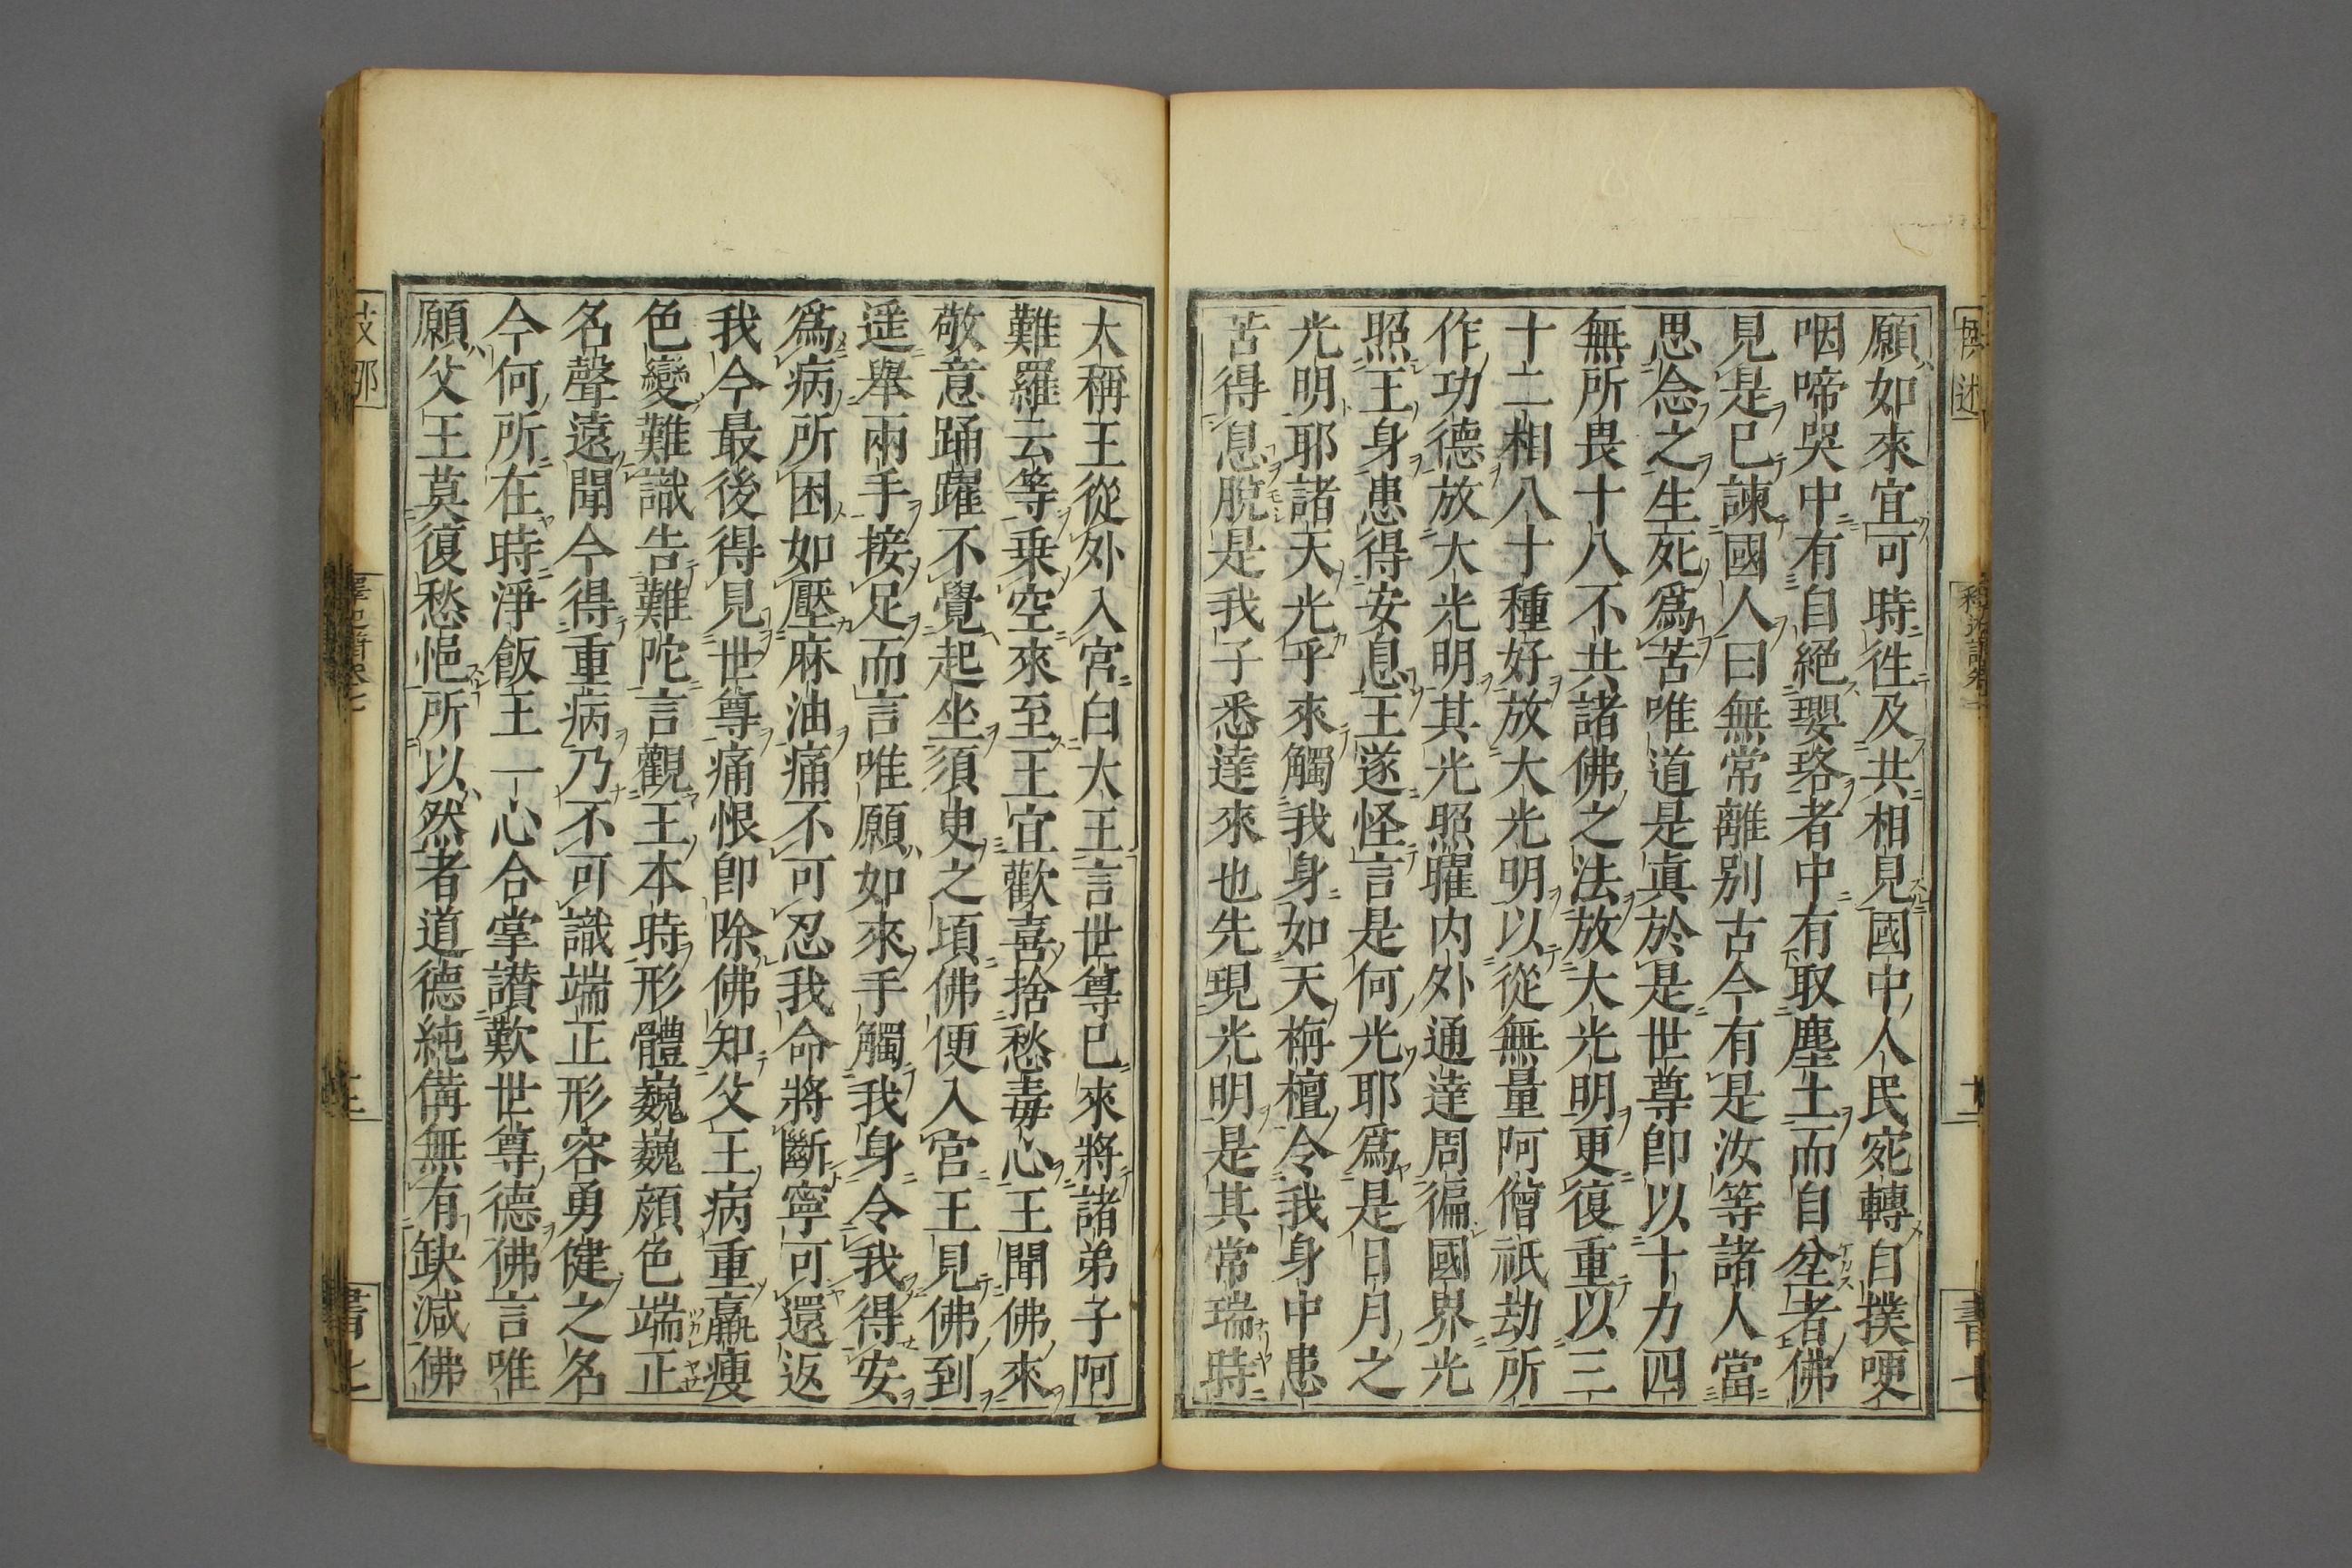 願如來宜可時徃及共相見國中人民宛轉自撲哽
咽啼哭中有自絕瓔珞者中有取塵土而自坌者佛
見是已諫國人曰無常離別古今有是汝等諸人當
思念之生死爲苦唯道是眞於是世尊卽以十力四
無所畏十八不共諸佛之法放大光明更復重以三
十二相八十種好放大光明以從無量阿僧祇劫所
作功德放大光明其光照曜内外通達周徧國界光
照王身患得安息王遂怪言是何光耶爲是日月之
光明耶諸天光乎來觸我身如天栴檀令我身中患
苦得息脫是我子悉達來也先現光明是其常瑞時
大稱王從外入宮白大王言世尊已來將諸弟子阿
難羅云等乗空來至王宜歡喜捨愁毒心王聞佛來
敬意踊躍不覺起坐須臾之頃佛便入宮王見佛到
遥舉兩手接足而言唯願如來手觸我身令我得安
爲病所困如壓麻油痛不可忍我命將斷寧可還返
我今最後得見世尊痛恨卽除佛知父王病重羸瘦
色變難識告難陀言觀王本時形體巍巍顔色端正
名聲遠聞今得重病乃不可識端正形容勇健之名
今何所在時淨飯王一心合掌讃歎世尊德佛言唯
願父王莫復愁悒所以然者道德純備無有缺減佛